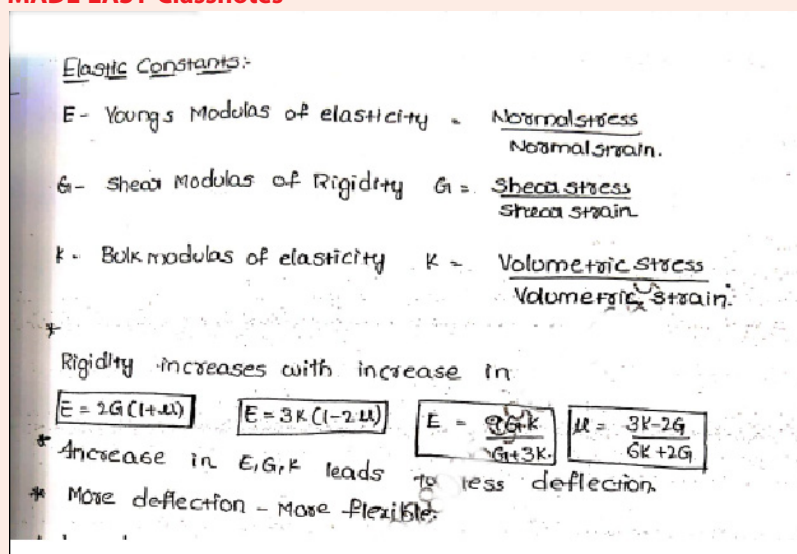 MADE EASY Classnotes
Elastic Constants:-
E - Youngs Modulas of elasticity = Normal stress / Normal strain.
G - Shear Modulas of Rigidity G = Shear stress / Shear strain
K - Bulk modulas of elasticity K = Volumetric Stress / Volumetric Strain.
*
Rigidity increases with increase in
E = 2G(1+μ) E = 3K(1-2μ) E = 9GK / G+3K. μ = 3K-2G / 6K+2G
* Increase in E,G,K leads to less deflection.
* More deflection - More flexible.